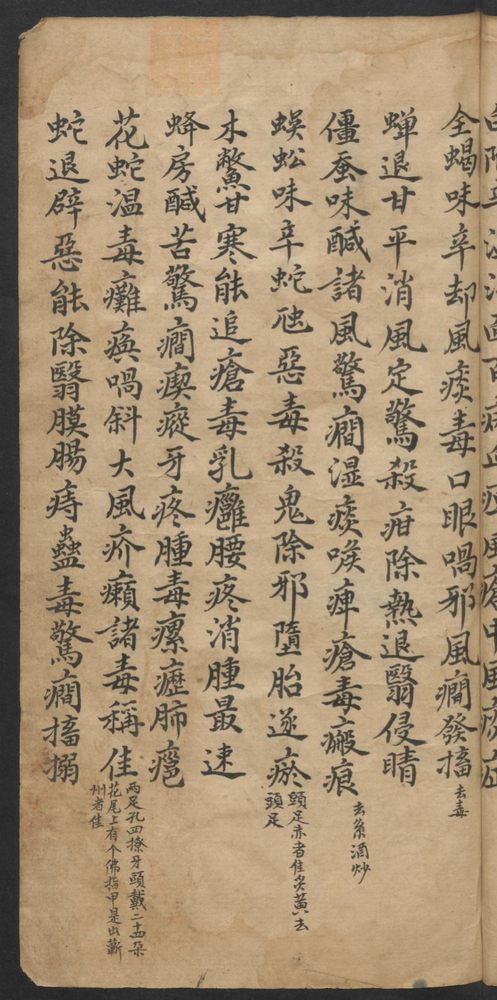 全蝎味辛却風痰毒口眼喎邪風癇發搐 去毒
蟬退甘平消風定驚殺疳除熱退翳侵睛
僵蚕味醎諸風驚癇湿痰喉痺瘡毒瘢痕 去条酒炒
蜈蚣味辛蛇虺惡毒殺鬼除邪墮胎逐瘀 頭足赤者佳炙黃去
頭足
木鱉甘寒能追瘡毒乳癰腰疼消腫最速
蜂房醎苦驚癇瘈瘲牙疼腫毒瘰癧肺癰
花蛇温毒癱瘓喎斜大風疥癩諸毒稱佳 兩足孔四撩牙頭戴二十四朵
花尾上有个佛指甲是出蘄
州者佳
蛇退辟惡能除翳膜腸痔蠱毒驚癇搐搦